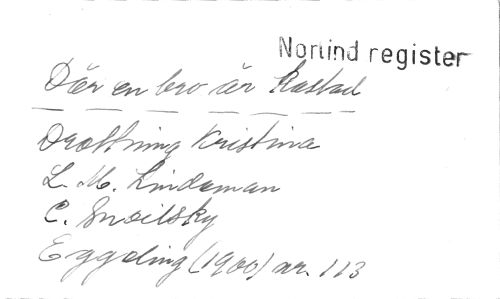 Norlind register
Där en bro är kastad
Drottning Kristina
L. M. Lindeman
C. Snoilsky
Eggeling (1900) nr. 113